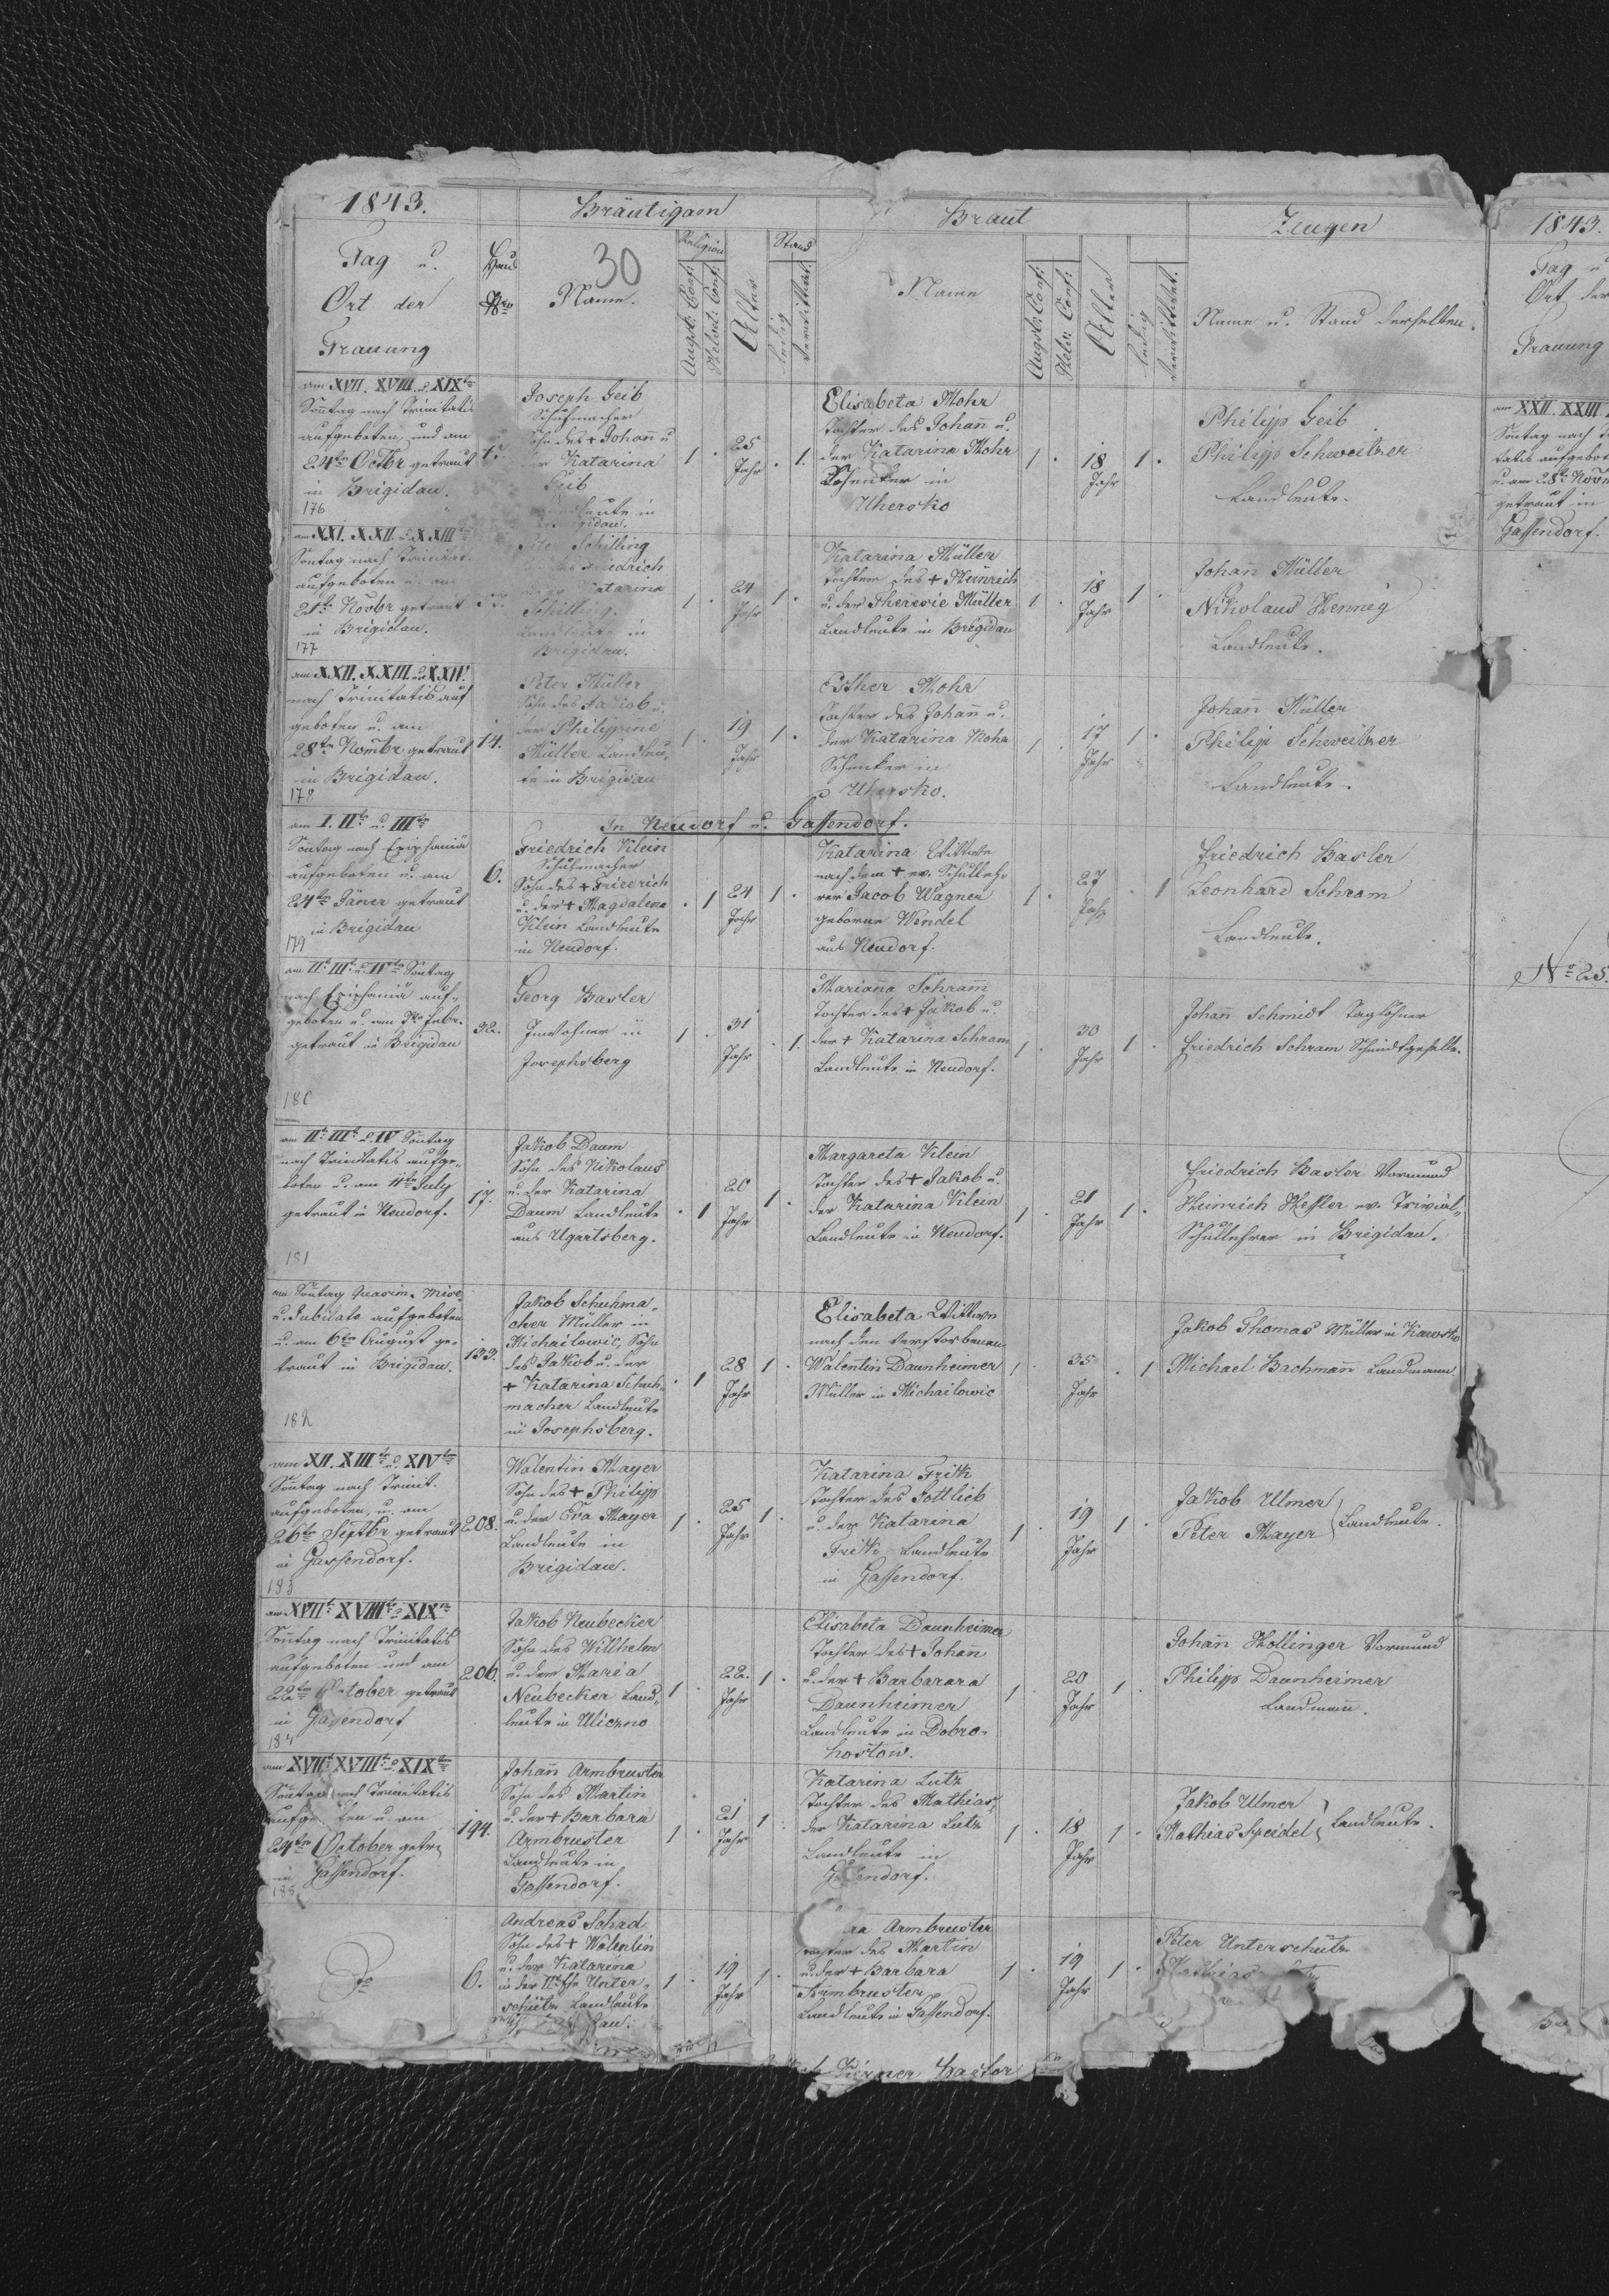 1843.
Bräutigam
Braut
Zeugen
Tag u.
Ort der
Trauung
Haus
Nro
30
Name.
Religion
Augsb: Conf:
Helvt: Conf:
Alter
Stand
ledig
verwittbt.
Name
Augsb: Conf:
Helv: Conf:
Alter
ledig
verwittbt.
Name u. Stand derselben.
am XVII. XVIII. u. XIXten
Soñtag nach Trinitatis
aufgeboten und am
24ten Octbr getraut
in Brigidau.
176
Joseph Geib
Schuhmacher
Sohn des + Johañ u
der Katarina
Geib
Landleute in
1 . 25 Jahr . 1.
Elisabeta Mohr
Tochter des Johañ u.
der Katarina Mohr
Schenker in
Uhersko
1 . 18 Jahr 1 .
Philipp Geib
Philipp Schweitzer
Landleute.
am XXI. XXII. u. XXIIIten
Sontag nach Trinitat.
aufgeboten u. am
21ten Novbr getraut
in Brigidau.
177
Schilling
Friedrich
Katarina
Schilling.
Landleute in
Brigidau.
1 . 24 Jahr 1 .
Katarina Müller
Tochter des + Heinrich
u. der Theresie Müller
Landleute in Brigidau
1 . 18 Jahr 1 .
Johañ Müller
Nikolaus Hennig
Landleute.
am XXII. XXIII. u. XXIV.
nach Trinitatis auf
geboten u. am
28ten Novmbr getraut
in Brigidau.
178
14.
Peter Müller
Sohn des Jakob u.
der Philippine
Müller Landleu,
te in Brigidau
1 . 19 Jahr 1 .
Esther Mohr
Tochter des Johañ u.
der Katarina Mohr
Schenker in
Uhersko.
1 . 17 Jahr 1 .
Johañ Müller
Philipp Schweitzer
Landleute.
In Neudorf u. Gassendorf.
am I. IIten u. IIIten
Soñtag nach Epiphaniä
aufgeboten u. am
24ten Jäner getraut
in Brigidau
179
6.
Friedrich Klein
Schuhmacher
Sohn des + Friedrich
u. der + Magdalena
Klein Landleute
in Neudorf.
. 1 24 Jahr 1 .
Katarina Wittwe
nach dem + ev. Schulleh,
rer Jacob Wagner
geborne Wendel
aus Neudorf.
1 . 27 Jahr . 1
Friedrich Basler
Leonhard Schram
Landleute.
am IIt. IIIt. u. IVten Soñtag
nach Epiphaniä auf,
geboten u. am Febr.
getraut in Brigidau
180
32.
Georg Basler
Inwohner in
Josephsberg
1 . 31 Jahr . 1.
Mariana Schram
Tochter des + Jakob u.
der + Katarina Schram
Landleute in Neudorf.
1 . 30 Jahr 1 .
Johañ Schmidt Taglöhner
Friedrich Schram Schmidtgeselle.
am IIt. IIIt. u. IV Soñtag
nach Trinitatis aufge,
boten u. am 11ten July
getraut in Neudorf.
181
17.
Jakob Daum
Sohn des Nikolaus
u. der Katarina
Daum Landleute
aus Ugartsberg.
. 1 20 Jahr 1 .
Margareta Klein
Tochter des + Jakob u.
der Katarina Klein
Landleute in Neudorf.
1 . 21 Jahr 1 .
Friedrich Basler Vormund
Heinrich Hessler ev. Trivial,
Schullehrer in Brigidau.
am Soñtag Quasim. Mise.
u. Jubilate aufgeboten
u. am 6ten August ge,
traut in Brigidau.
182
133.
Jakob Schuhma,
cher Müller in
Michailowic, Sohn
des Jakob u. der
+ Katarina Schuh,
macher Landleute
in Josephsberg.
. 1 28 Jahr 1 .
Elisabeta Wittwe
nach den verstorbenen
Walentin Daunheimer
Müller in Michailowic
1 . 35 Jahr . 1
Jakob Thomas Müller in Kawsko
Michael Bachmañ Landmann
am XII. XIIIten u. XIVten
Soñtag nach Trinit.
aufgeboten, u. am
26ten Septbr getraut
in Gassendorf.
183
208.
Walentin Mayer
Sohn des + Philipp
u. der Eva Mayer
Landleute in
Brigidau.
1 . 25 Jahr 1 .
Katarina Frith
Tochter des Gottlieb
u. der Katarina
Frith Landleute
in Gassendorf.
1 . 19 Jahr 1 .
Jakob Ulmer
Peter Mayer } Landleute.
am XVIIt. XVIIIt. u. XIXten
Soñtag nach Trinitatis
aufgeboten und am
22ten October getraut
in Gassendorf
184
206.
Jakob Neubecker
Sohn des Willhelm
u. der Maria
Neubecker Land,
leute in Uliczno
1 . 22. Jahr 1 .
Elisabeta Daunheimer
Tochter des + Johañ
u. der + Barbarara
Daunheimer
Landleute in Dobro,
hostow.
1 . 20 Jahr 1 .
Johañ Hollinger Vormund
Philipp Daunheimer
Landmañ.
am XVIIt. XVIIIt. u. XIXten
Soñtag nach Trinitatis
u. am
24ten October getr,
in Gassendorf.
185
194.
Johañ Armbruster
Sohn des Martin
u. der + Barbara
Armbruster
Landleute in
Gassendorf.
1 . 21 Jahr 1 .
Katarina Lutz
Tochter des Mathias
der Katarina Lutz
Landleute in
Gassendorf.
1 . 18 Jahr 1 .
Jakob Ulmer
Mathias Speidel } Landleute.
6.
Andreas Schad
Sohn des + Walentin
u. der Katarina
in der IIt. Ehe Unter,
schütz Landleute
1 . 19 Jahr 1 .
Armbruster
Tochter des Martin
u. der + Barbara
Armbruster
Landleute in Gassendorf.
1 . 19 Jahr 1 .
Peter Unterschütz
Pastor
1843.
Tag u
Ort der
Trauung
am XXII. XXIII.
Sontag nach
tatis aufgebot
u. am 28t. Novm
getraut in
Gassendorf.
No 25.